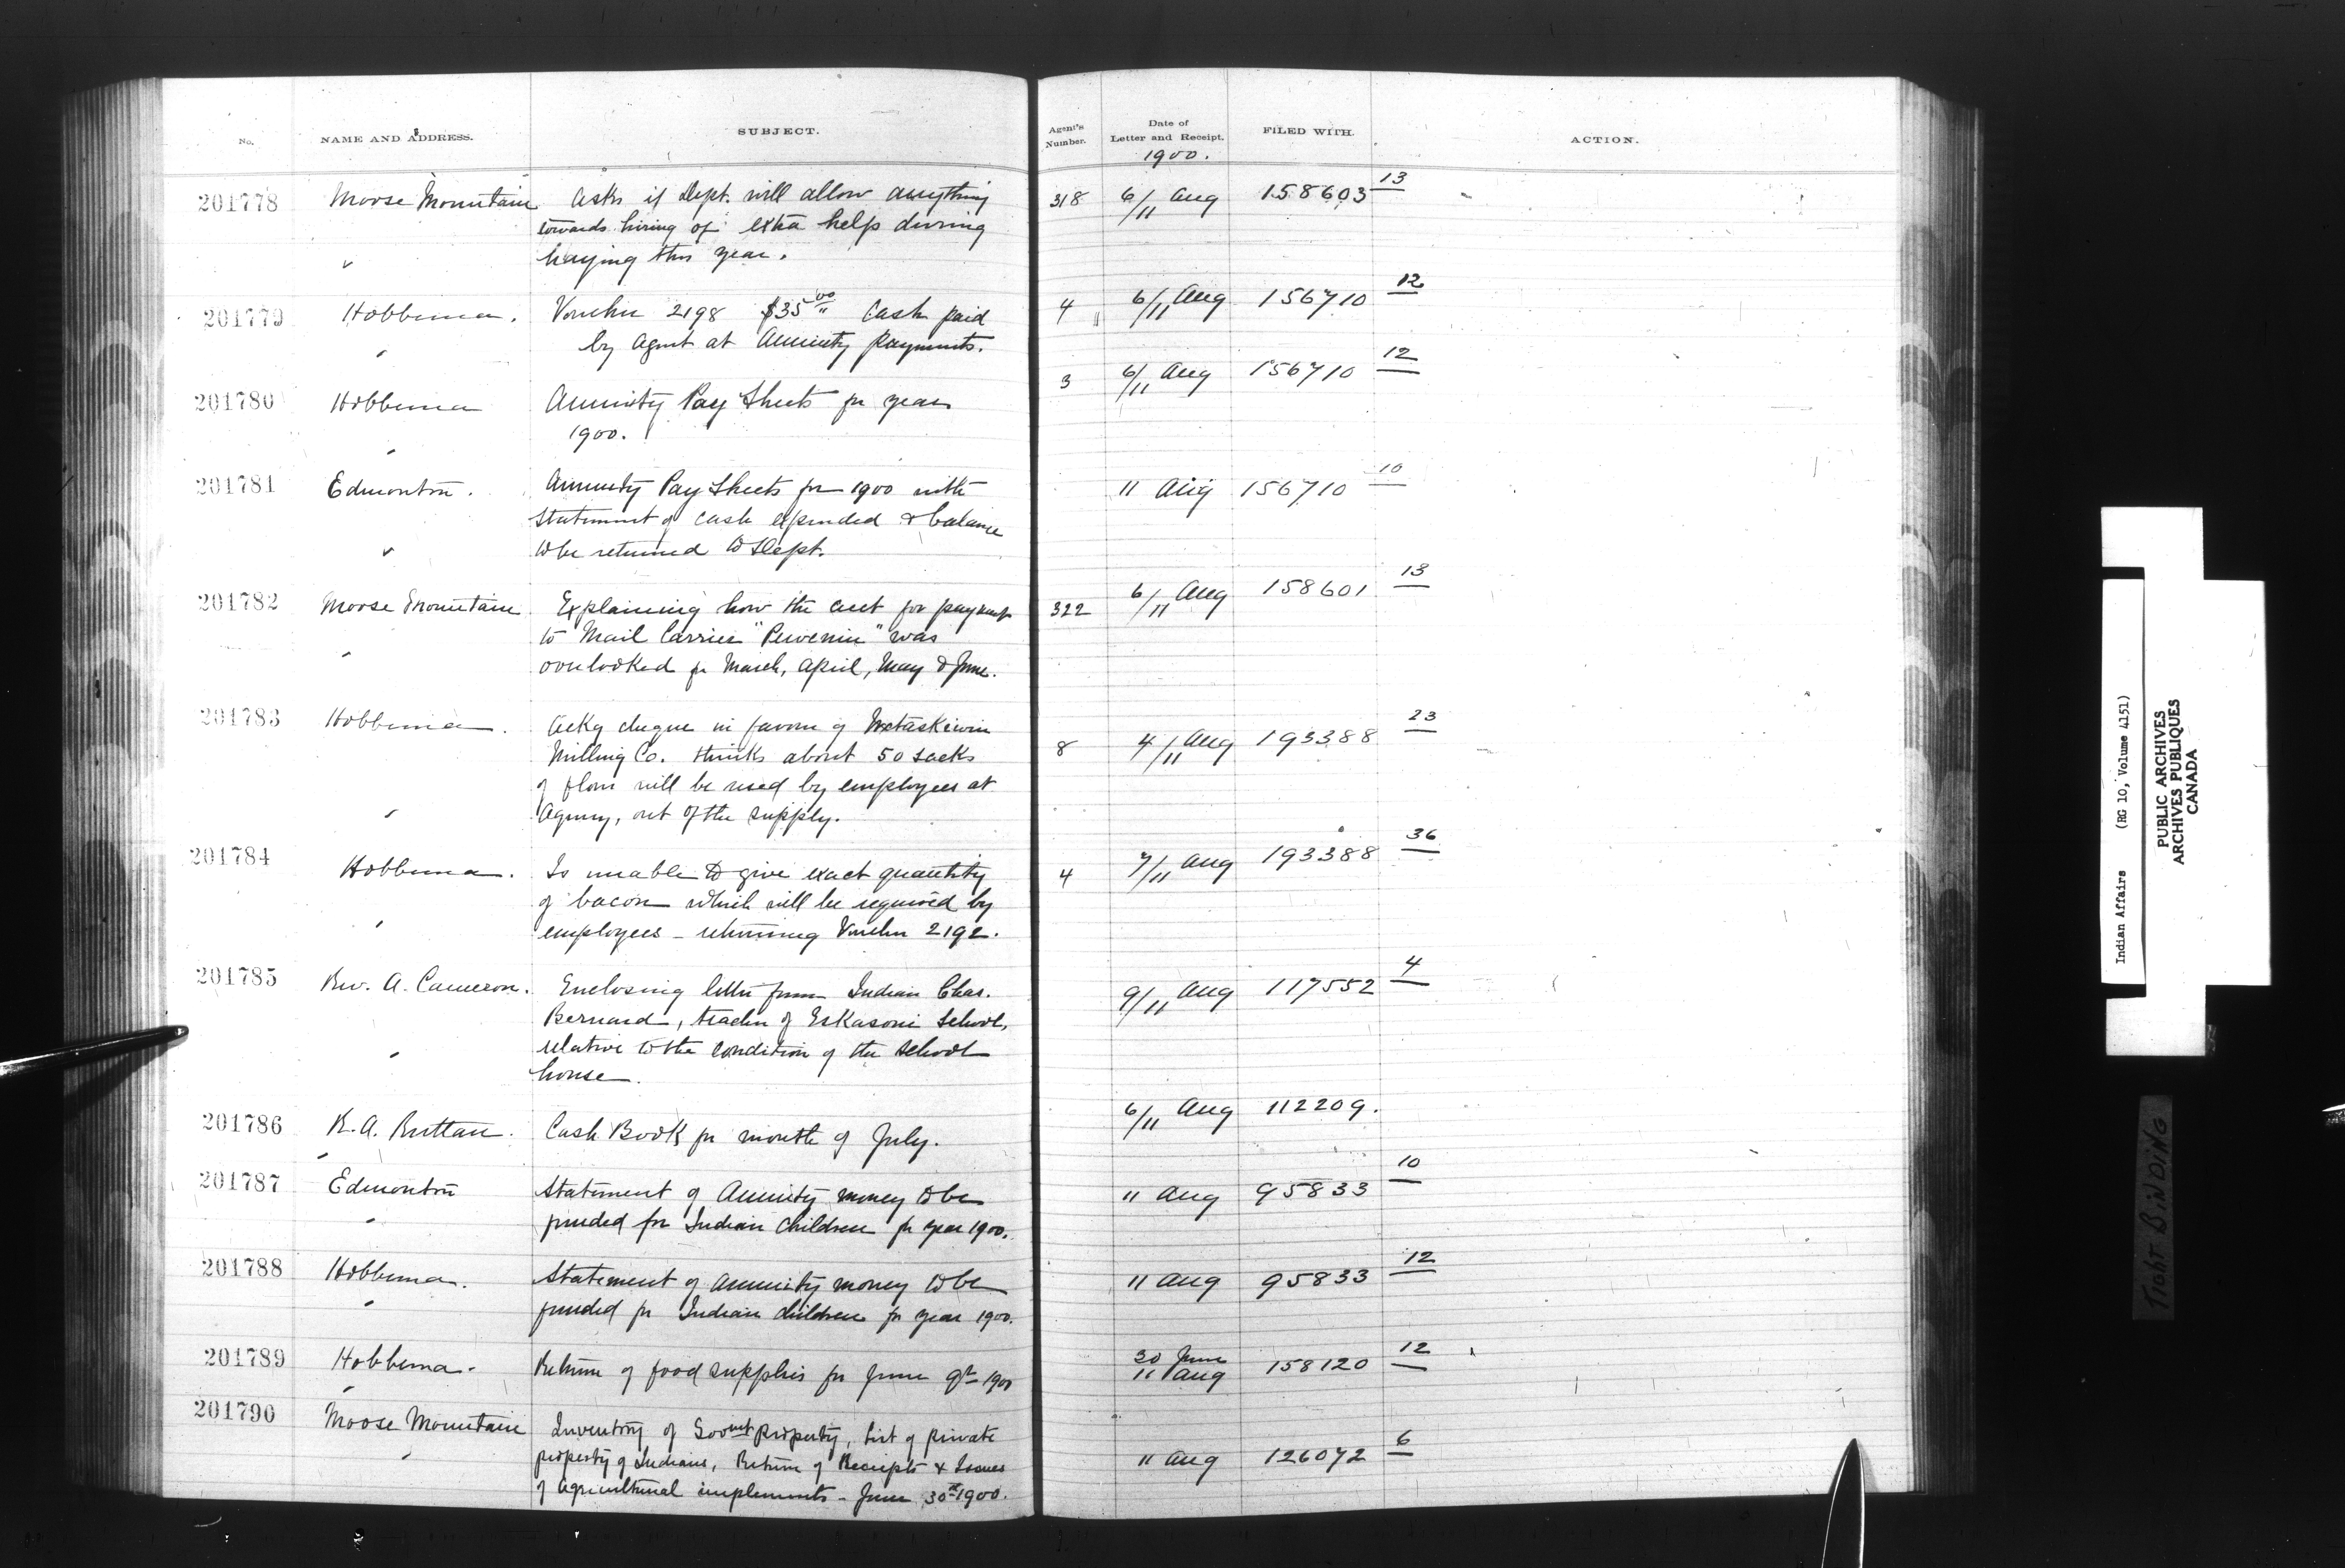 No. NAME AND ADDRESS. SUBJECT. Agent's Number. Date of Letter and Receipt. FILED WITH. ACTION.
1900.
201778 Moose Mountain Asks if Dept. will allow anything 318 6/11 Aug 158603 13
towards hiring of extra help during
haying this year.
201779 Hobbema. Voucher 2198 $35 00 Cash paid 4 6/11 Aug 156710 12
by Agent at Annuity Payments.
201780 Hobbema Annuity Pay Sheets for year 3 6/11 Aug 156710 12
1900.
201781 Edmonton. Annuity Pay Sheets for 1900 with 11 Aug 156710 10
statement of cash expended & balance
to be returned to Dept.
201782 Moose Mountain Explaining how the acct for payment 322 6/11 Aug 158601 13
to Mail Carrier " " was
overlooked for March, April, May & June.
201783 Hobbema. Ackg cheque in favour of Wetaskiwin 8 4/11 Aug 193388 23
Milling Co. thinks about 50 sacks
of flour will be used by employees at
Agency, out of the supply.
201784 Hobbema. Is unable to give exact quantity 4 7/11 Aug 193388 36
of bacon which will be required by
employees - returning Voucher 2192.
201785 Rev. A. Cameron. Enclosing letter from Indian Chas. 9/11 Aug 117552 4
Bernard, teacher of Eskasoni School,
relative to the condition of the school
house.
201786 R. A. Ruttan. Cash Book for month of July. 6/11 Aug 112209.
201787 Edmonton Statement of Annuity money to be 11 Aug 95833 10
funded for Indian Children for year 1900.
201788 Hobbema. Statement of annuity money to be 11 Aug 95833 12
funded for Indian children for year 1900.
201789 Hobbema. Return of food supplies for June qr 1900 30 June 11 Aug 158120 12
201790 Moose Mountain Inventory of Govmt Property, List of private 11 Aug 126072 6
property of Indians, Return of Receipts & Issues
of Agricultural implements - June 30th 1900.
Indian Affairs (RG 10, Volume 4151)
PUBLIC ARCHIVES
ARCHIVES PUBLIQUES
CANADA
TIGHT BINDING